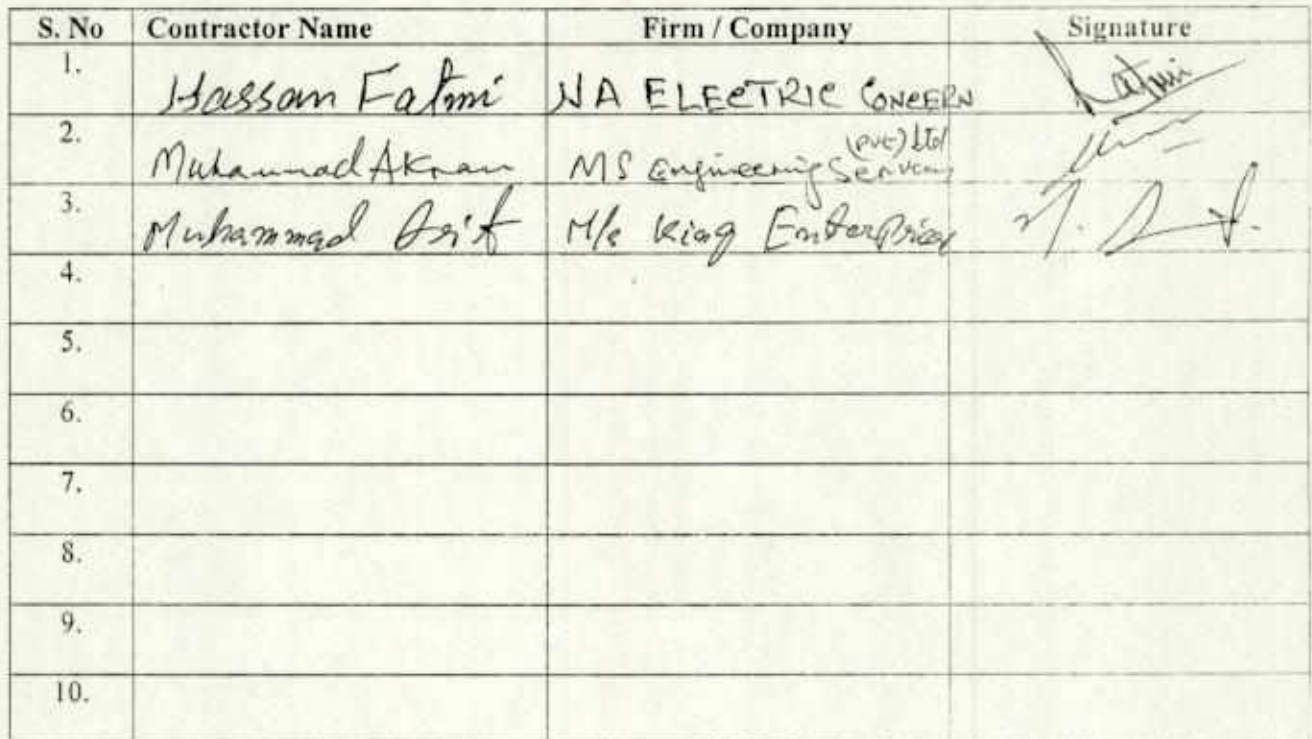 S. No Contractor Name Firm / Company Signature
1. Hassan Fatmi NA ELECTRIC CONCERN Fatmi
2. Muhammad Akram MS Engineering Services (Pvt) Ltd
3. Muhammad Asif M/s King Enterprises
4.
5.
6.
7.
8.
9.
10.